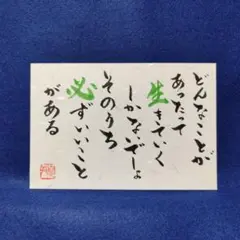 どんなことが
あったって
生きていく
しかないでしょ
そのうち
必ずいいこと
がある